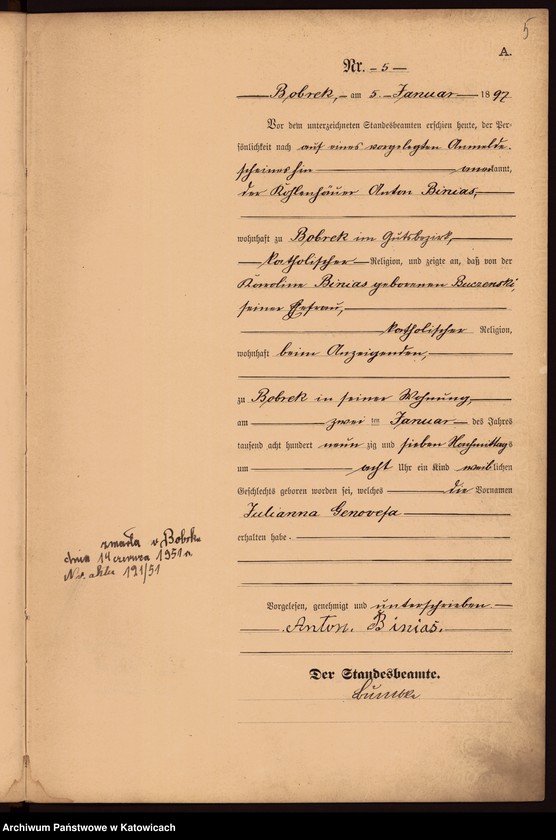 5
A.
Nr. 5
Bobrek, am 5. Januar 1897
Vor dem unterzeichneten Standesbeamten erschien heute, der Per-
sönlichkeit nach auf eines vorgelegten Anmelde-
scheines hin anerkannt,
der Kohlenhäuer Anton Binias,
wohnhaft zu Bobrek im Gutsbezirk,
katholischer Religion, und zeigte an, daß von der
Karoline Binias geborenen Buczenski,
seiner Ehefrau,
katholischer Religion,
wohnhaft beim Anzeigenden,
zu Bobrek in seiner Wohnung,
am zwei ten Januar des Jahres
tausend acht hundert neun zig und sieben Nachmittags
um acht Uhr ein Kind weiblichen
Geschlechts geboren worden sei, welches die Vornamen
Julianna Genovefa
erhalten habe.
zmarła w Bobrku
dnia 14 czerwca 1951 r.
Nr. aktu 121/51
Vorgelesen, genehmigt und unterschrieben
Anton. Binias.
Der Standesbeamte.
Archiwum Państwowe w Katowicach